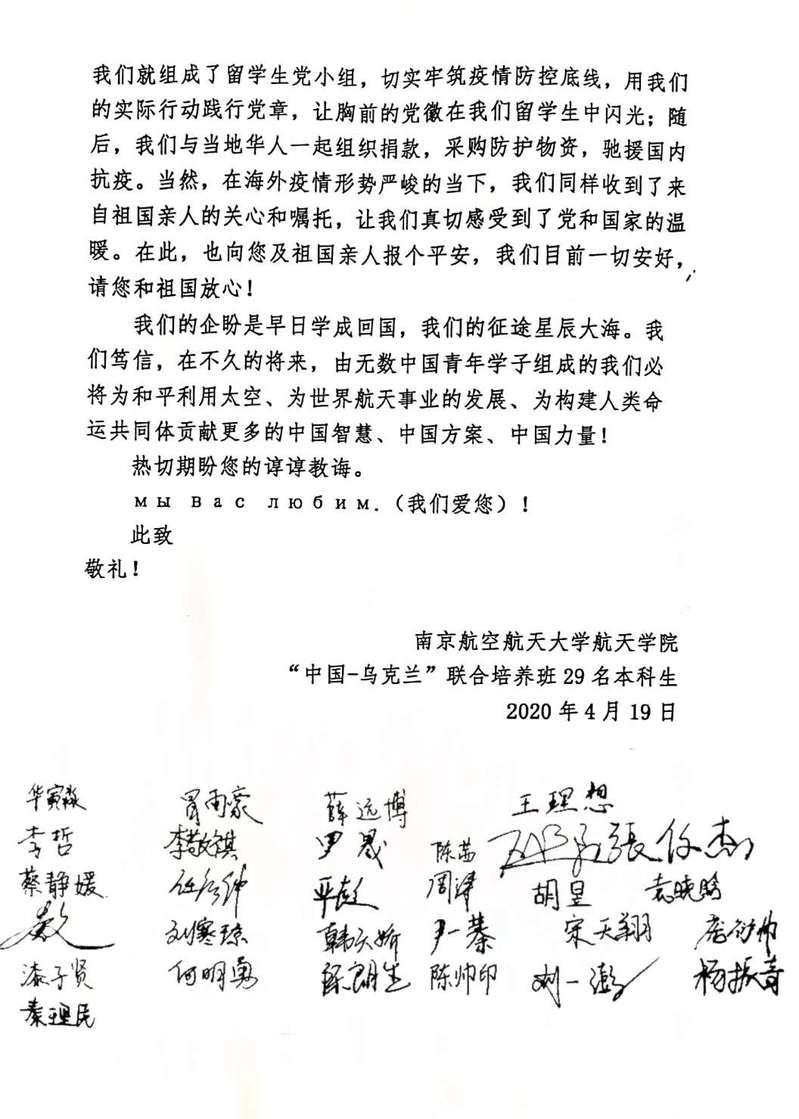 我们就组成了留学生党小组，切实牢筑疫情防控底线，用我们
的实际行动践行党章，让胸前的党徽在我们留学生中闪光；随
后，我们与当地华人一起组织捐款，采购防护物资，驰援国内
抗疫。当然，在海外疫情形势严峻的当下，我们同样收到了来
自祖国亲人的关心和嘱托，让我们真切感受到了党和国家的温
暖。在此，也向您及祖国亲人报个平安，我们目前一切安好，
请您和祖国放心！
我们的企盼是早日学成回国，我们的征途星辰大海。我
们笃信，在不久的将来，由无数中国青年学子组成的我们必
将为和平利用太空、为世界航天事业的发展、为构建人类命
运共同体贡献更多的中国智慧、中国方案、中国力量！
热切期盼您的谆谆教诲。
мы вас любим.（我们爱您）！
此致
敬礼！
南京航空航天大学航天学院
“中国-乌克兰”联合培养班29名本科生
2020年4月19日
华寅淼 胥雨豪 薛远博 王理想
李哲 李敬祺 尹晟 陈茜 張仁杰
蔡静媛 周泽 胡昱 袁晓晗
刘寒琼 尹一蓁 宋天翔
漆子贤 何明勇 陈帅印 刘一澎 杨振奇
秦理民